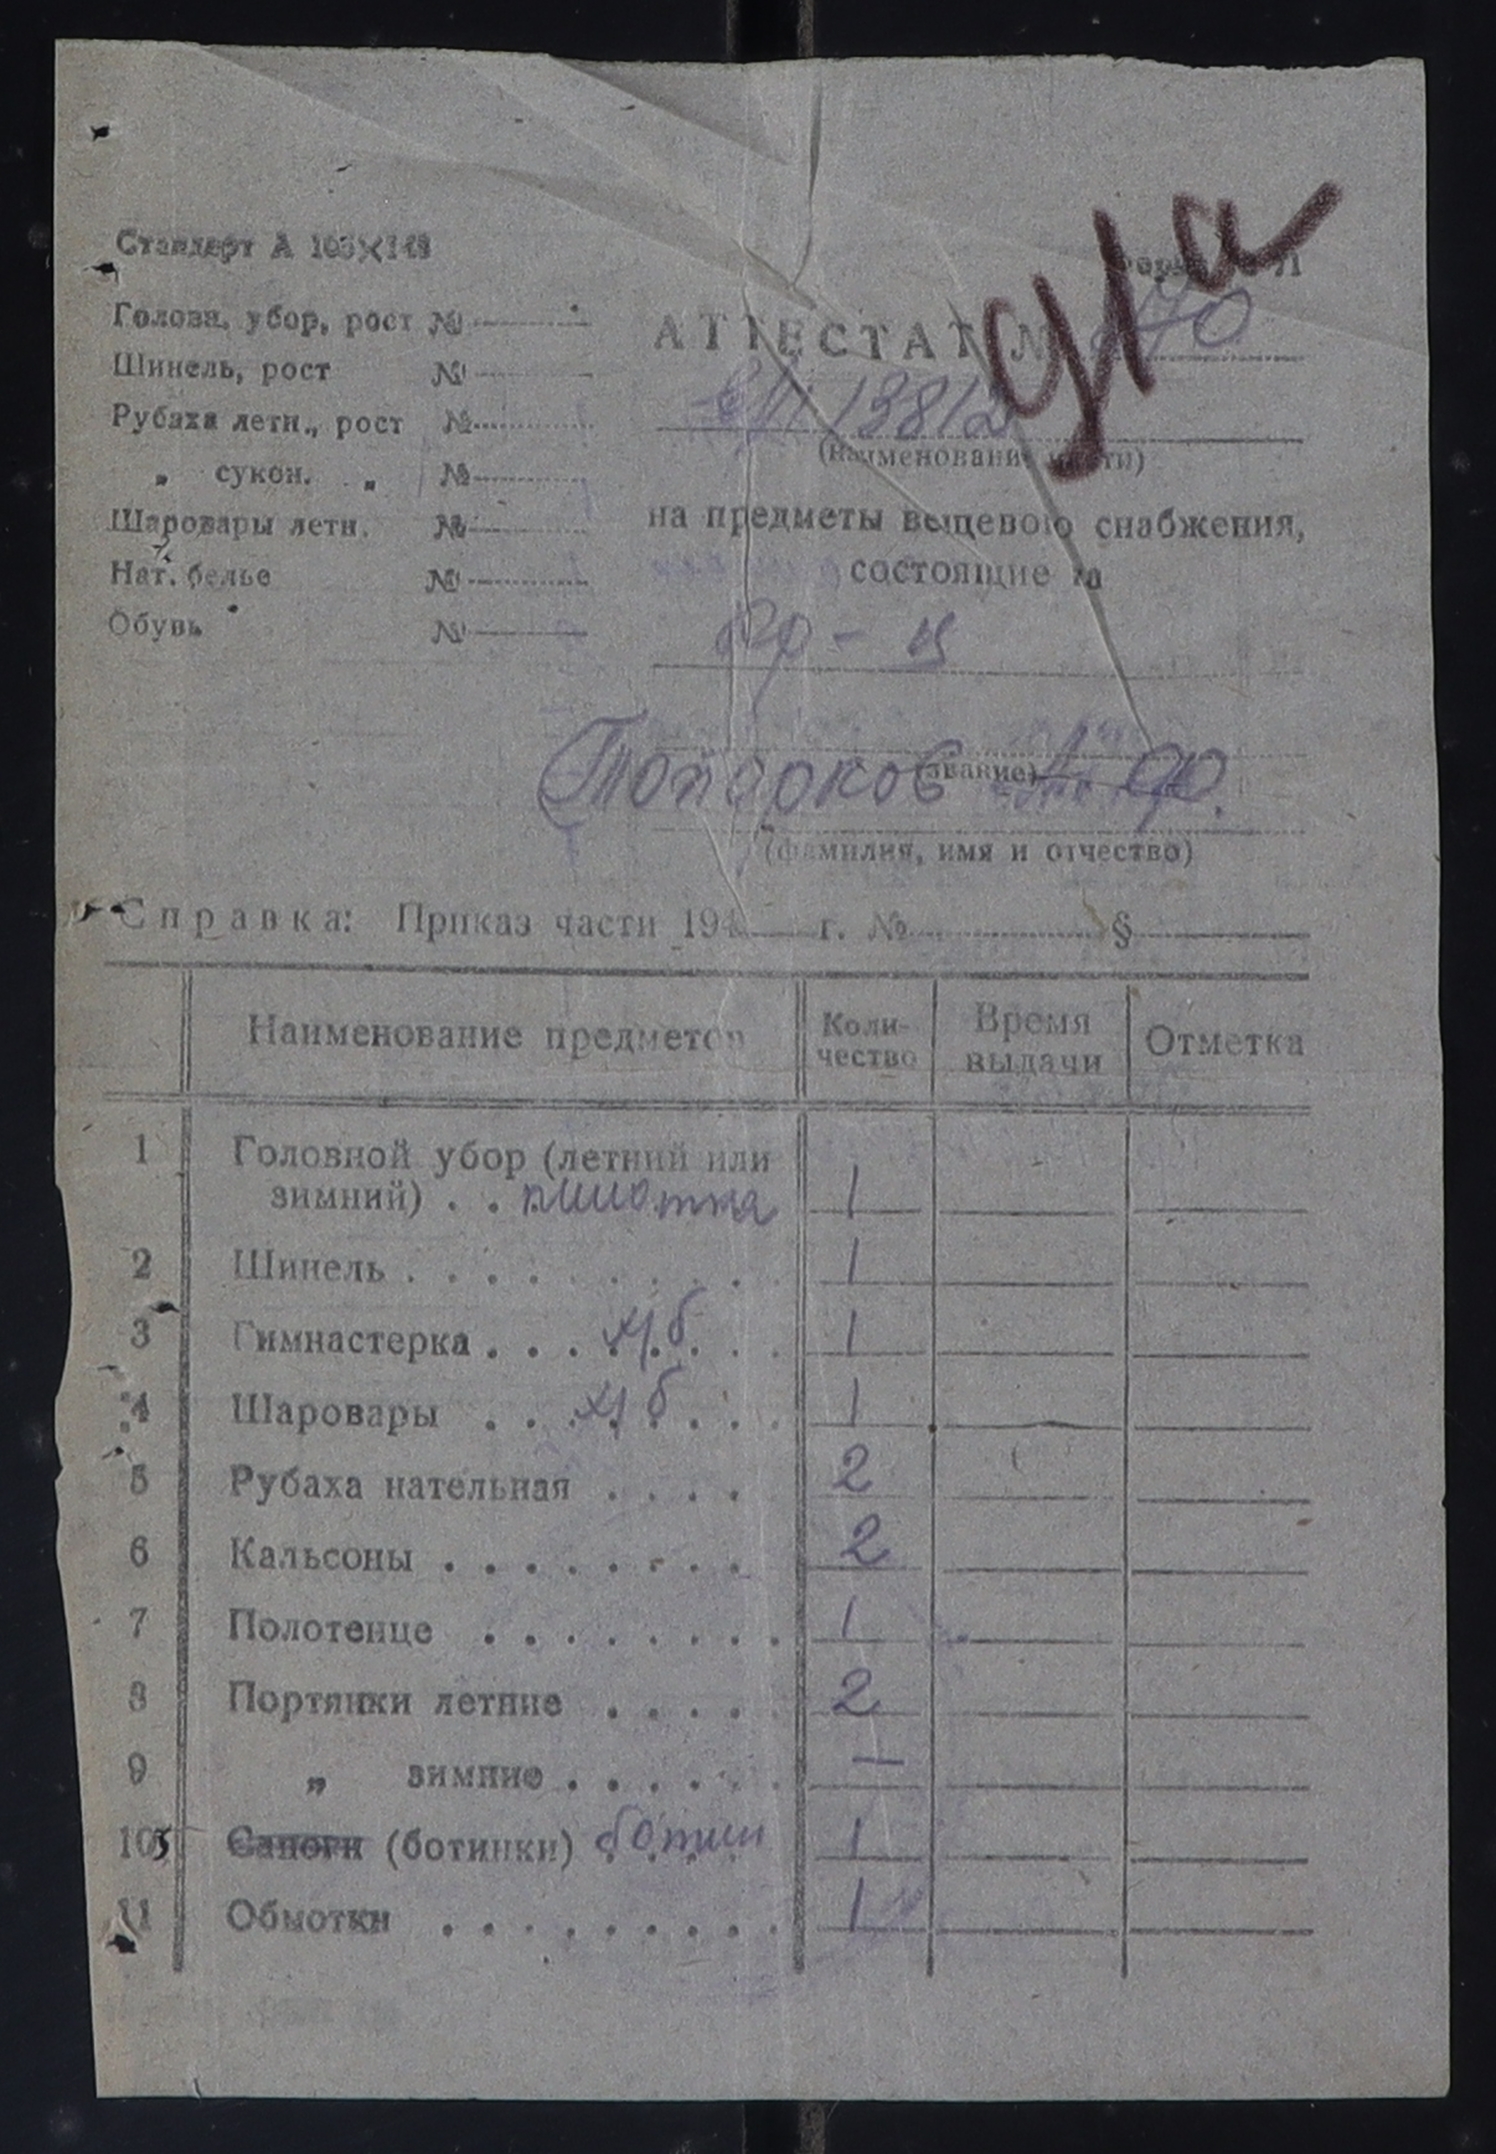 Стандарт А 105×148
Голова. убор, рост №
Шинель, рост №
Рубаха летн., рост №
„ сукон. „ №
Шаровары летн. №
Нат. белье №
Обувь №
АТТЕСТАТ №
13812
(наименование части)
на предметы вещевого снабжения,
состоящие на
(звание)
Ф.
(фамилия, имя и отчество)
Справка: Приказ части 194 г. № §
Наименование предметов Коли-чество Время выдачи Отметка
1 Головной убор (летний или
зимний) . . пилотка 1
2 Шинель . . . . . . . . . . 1
3 Гимнастерка . . . х/б . . . . 1
4 Шаровары . . . х/б . . . . 1
5 Рубаха нательная . . . . 2
6 Кальсоны . . . . . . . . 2
7 Полотенце . . . . . . . . 1
8 Портянки летние . . . . 2
9 „ зимние . . . . . . —
10 Сапоги (ботинки) ботин 1
11 Обмотки . . . . . . . . . 1